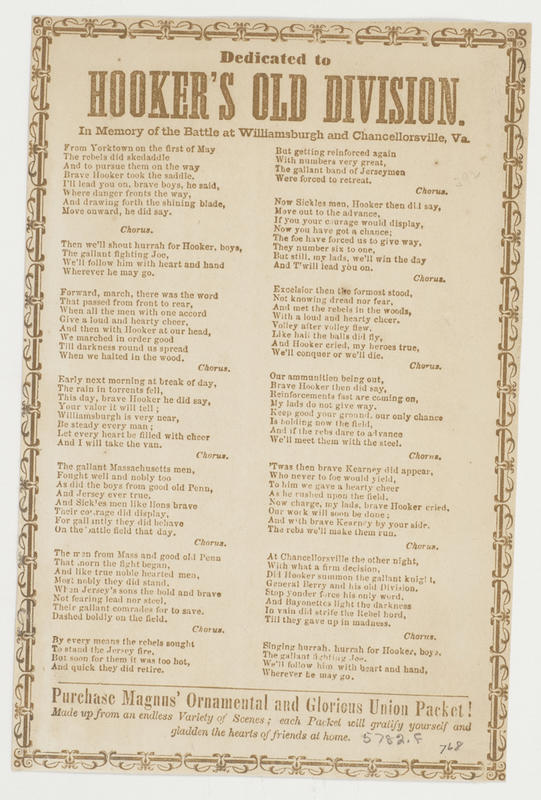 Dedicated to
HOOKER'S OLD DIVISION.
In Memory of the Battle at Williamsburgh and Chancellorsville, Va.
From Yorktown on the first of May
The rebels did skedaddle
And to pursue them on the way
Brave Hooker took the saddle.
I'll lead you on, brave boys, he said,
Where danger fronts the way,
And drawing forth the shining blade,
Move onward, he did say.
Chorus.
Then we'll shout hurrah for Hooker, boys,
The gallant fighting Joe,
We'll follow him with heart and hand
Wherever he may go.
Forward, march, there was the word
That passed from front to rear,
When all the men with one accord
Give a loud and hearty cheer,
And then with Hooker at our head,
We marched in order good
Till darkness round us spread
When we halted in the wood.
Chorus.
Early next morning at break of day,
The rain in torrents fell,
This day, brave Hooker he did say,
Your valor it will tell;
Williamsburgh is very near,
Be steady every man;
Let every heart be filled with cheer
And I will take the van.
Chorus.
The gallant Massachusetts men,
Fought well and nobly too
As did the boys from good old Penn,
And Jersey ever true.
And Sickles men like lions brave
Their courage did display,
For gallantly they did behave
On the battle field that day.
Chorus.
The men from Mass and good old Penn
That morn the fight began,
And like true noble hearted men,
Most nobly they did stand.
When Jersey's sons the bold and brave
Not fearing lead nor steel,
Their gallant comrades for to save.
Dashed boldly on the field.
Chorus.
By every means the rebels sought
To stand the Jersey fire.
But soon for them it was too hot,
And quick they did retire.
But getting reinforced again
With numbers very great,
The gallant band of Jerseymen
Were forced to retreat.
Chorus.
Now Sickles men, Hooker then did say,
Move out to the advance,
If you your courage would display,
Now you have got a chance;
The foe have forced us to give way,
They number six to one,
But still, my lads, we'll win the day
And I'will lead you on.
Chorus.
Excelsior then the formost stood,
Not knowing dread nor fear,
And met the rebels in the woods,
With a loud and hearty cheer.
Volley after volley flew.
Like hail the balls did fly,
And Hooker cried, my heroes true,
We'll conquer or we'll die.
Chorus.
Our ammunition being out,
Brave Hooker then did say,
Reinforcements fast are coming on,
My lads do not give way.
Keep good your ground, our only chance
Is holding now the field,
And if the rebs dare to advance
We'll meet them with the steel.
Chorus.
'Twas then brave Kearney did appear,
Who never to foe would yield,
To him we gave a hearty cheer
As he rushed upon the field.
Now charge, my lads, brave Hooker cried,
Our work will soon be done;
And with brave Kearney by your side.
The rebs we'll make them run.
Chorus.
At Chancellorsville the other night,
With what a firm decision,
Did Hooker summon the gallant knight,
General Berry and his old Division.
Stop yonder force his only word,
And Bayonettes light the darkness
In vain did strife the Rebel hord,
Till they gave up in madness.
Chorus.
Singing hurrah, hurrah for Hooker, boys,
The gallant fighting Joe.
We'll follow him with heart and hand,
Wherever he may go.
Purchase Magnus' Ornamental and Glorious Union Packet!
Made up from an endless Variety of Scenes; each Packet will gratify yourself and
gladden the hearts of friends at home. 5782.F
768